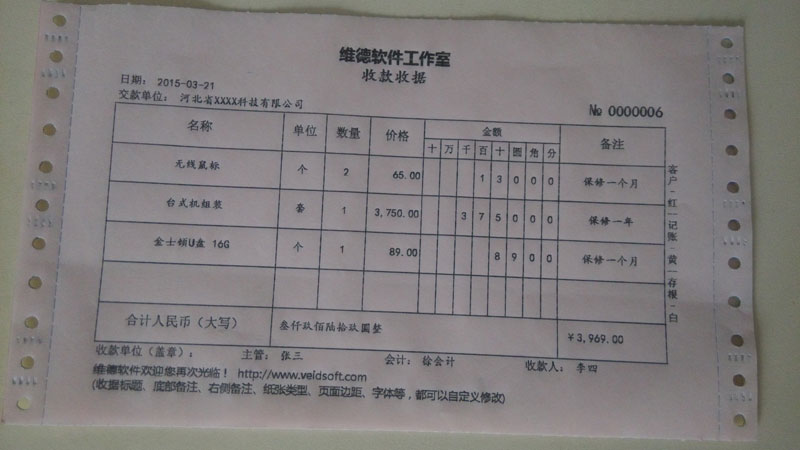 维德软件工作室
收款收据
日期： 2015-03-21
交款单位： 河北省XXXX科技有限公司
№ 0000006
名称 单位 数量 价格 金额 备注
十 万 千 百 十 圆 角 分
无线鼠标 个 2 65.00 1 3 0 0 0 保修一个月
台式机组装 套 1 3,750.00 3 7 5 0 0 0 保修一年
金士顿U盘 16G 个 1 89.00 8 9 0 0 保修一个月
合计人民币（大写） 叁仟玖佰陆拾玖圆整 ¥3,969.00
收款单位（盖章）： 主管： 张三 会计： 徐会计 收款人： 李四
维德软件欢迎您再次光临！ http://www.veldsoft.com
(收据标题、底部备注、右侧备注、纸张类型、页面边距、字体等，都可以自定义修改)
客户-红--记账-黄--存根-白